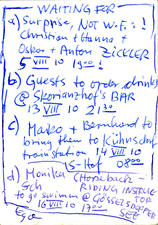 WAITING FOR
a) Surprise, NOT W.F.: !
Christian + Hanno +
Oskar + Anton ZICKLER
5 VIII 10 19:00 !
b) Guests to order drinks
@ Skorianzhof's BAR
13 VIII 10 21:30
c) Marko + Bernhard to
bring them to Kühnsdorf
train station 14 VIII 10
S-Hof 08:00
d) Monika (HORSEBACK-
RIDING INSTRUCTOR
to go swimming @ GÖSSELSDORFER
16 VIII 10 19:00 SEE